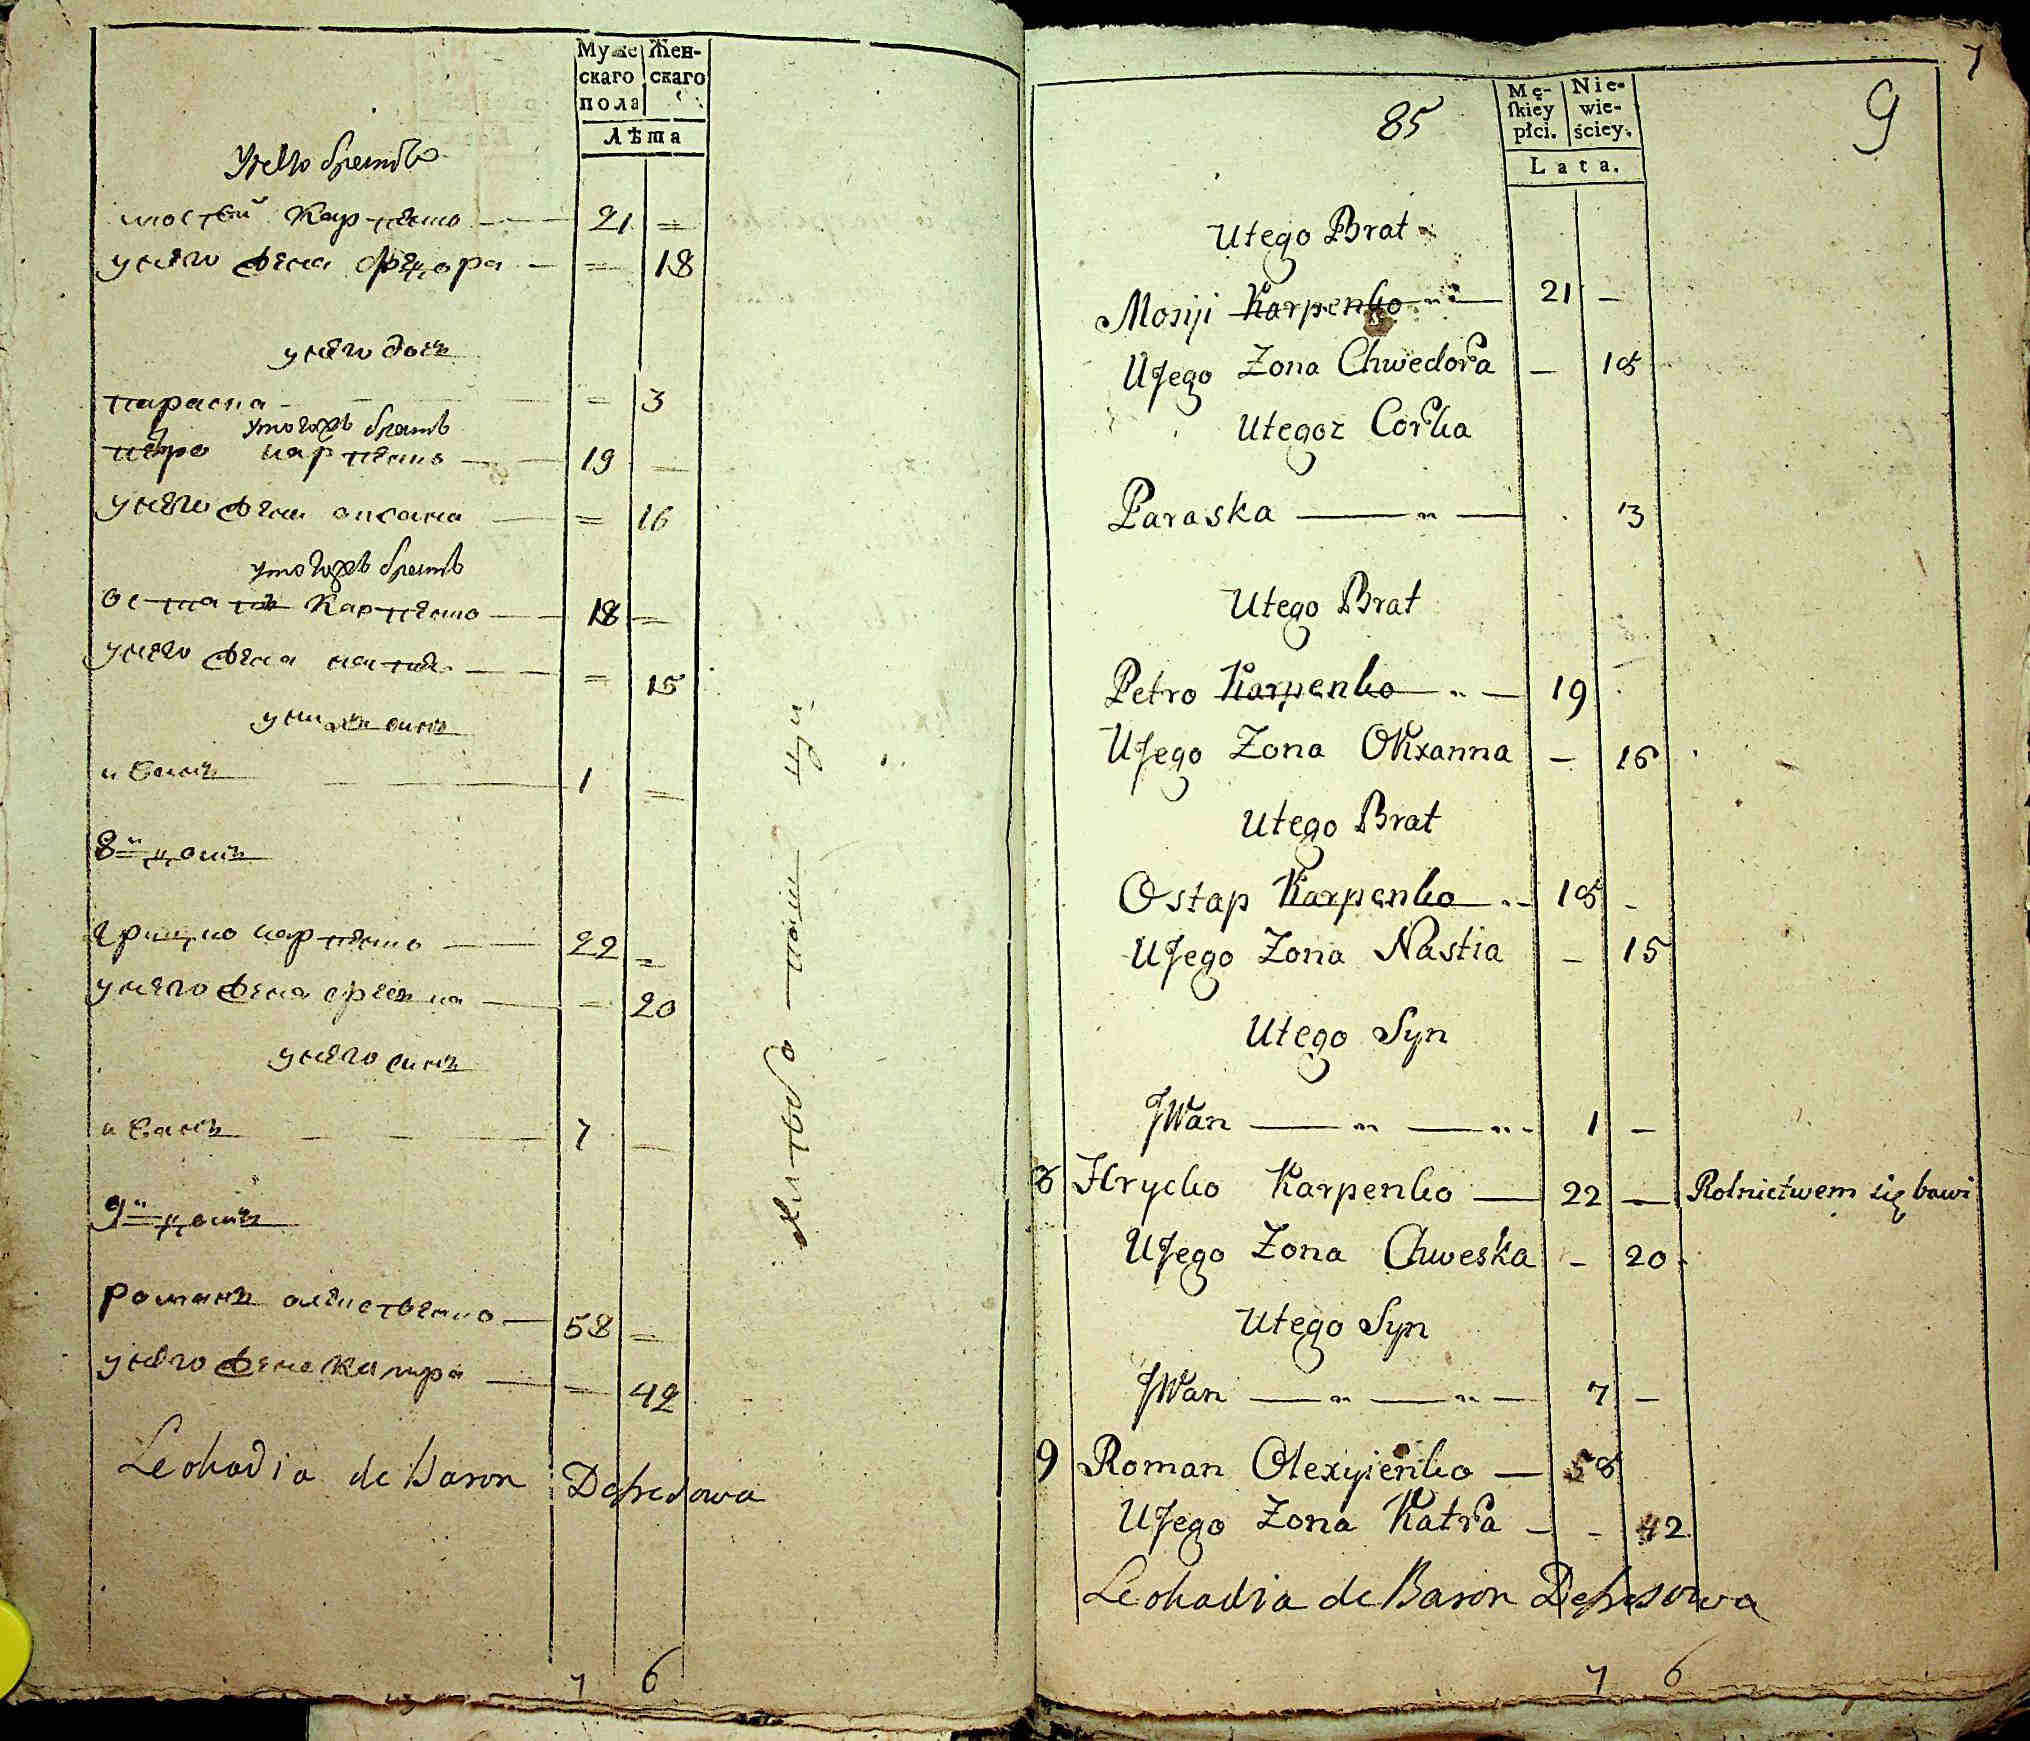 Муже Жен-
скаго скаго
пола
Лѣта
У него братъ
мосѣй Карпенко 21 =
у него жена Федора = 18
у него дочь
параска = 3
у того жъ братъ
петро карпенко 19 =
у него жена оксана = 16
у того жъ братъ
остапъ Карпенко 18 =
у него жена настя = 15
у них синъ
иванъ 1 =
8й домъ
грицко карпенко 22 =
у него жена фескa - 20
у него синъ
иванъ 7 -
9й домъ
романъ олексеенко 58 =
у него жена катра = 42
Leokadia de Baron Depresowa
7 6
7
85
Mę- Nie-
ſkiey wie-
płci. ściey.
9
Lata.
Utego Brat
Mosiji Karpenko 21 -
UJego Zona Chwedora - 18
Utegoż Corka
Paraska 3
Utego Brat
Petro Karpenko 19
UJego Zona OKxanna - 16
Utego Brat
Ostap Karpenko 18 -
UJego Zona Nastia - 15
Utego Syn
JWan 1 -
8 Hrycko Karpenko 22 - Rolnictwem się bawi
UJego Zona Chweska - 20
Utego Syn
JWan 7 -
9 Roman Olexyienko 58
UJego Zona Katra - 42
Leokadia de Baron Depresowa
7 6